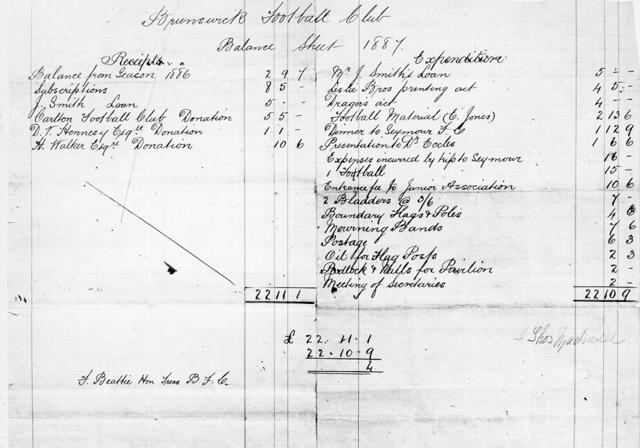 Brunswick Football Club
Balance Sheet 1887.
Receipts
Balance from Season 1886 2 9 7
Subscriptions 8 5 -
J. Smith Loan 5 - -
Carlton Football Club Donation 5 5 -
D. V. Hennesy Esqre Donation 1 1 -
H. Walker Esqre Donation 10 6
22 11 1
Expenditure
Mr J. Smith's Loan 5 - -
Leslie Bros printing act 4 5 -
Dragers act 4 - -
Football Material (E. Jones) 2 13 6
Dinner to Seymour F. C 1 12 9
Presentation to Dr Eccles 1 6 6
Expenses incurred by trip to Seymour 16 -
1 Football 15 -
Entrance fee to Junior Association 10 6
2 Bladders @ 3/6 7 -
Boundary Flags & Poles 4 6
Mourning Bands 7 6
Postage 6 3
Oil for Flag Posts 2 3
Padlock & for Pavilion 2 -
Meeting of Secretaries 2 -
22 10 9
£ 22. 11 - 1
22 - 10 - 9
4
J. Beattie Hon Treas B. F. C.
Thos